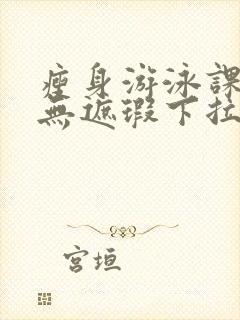 瘦身游泳課
無遮瑕下拉
宮垣